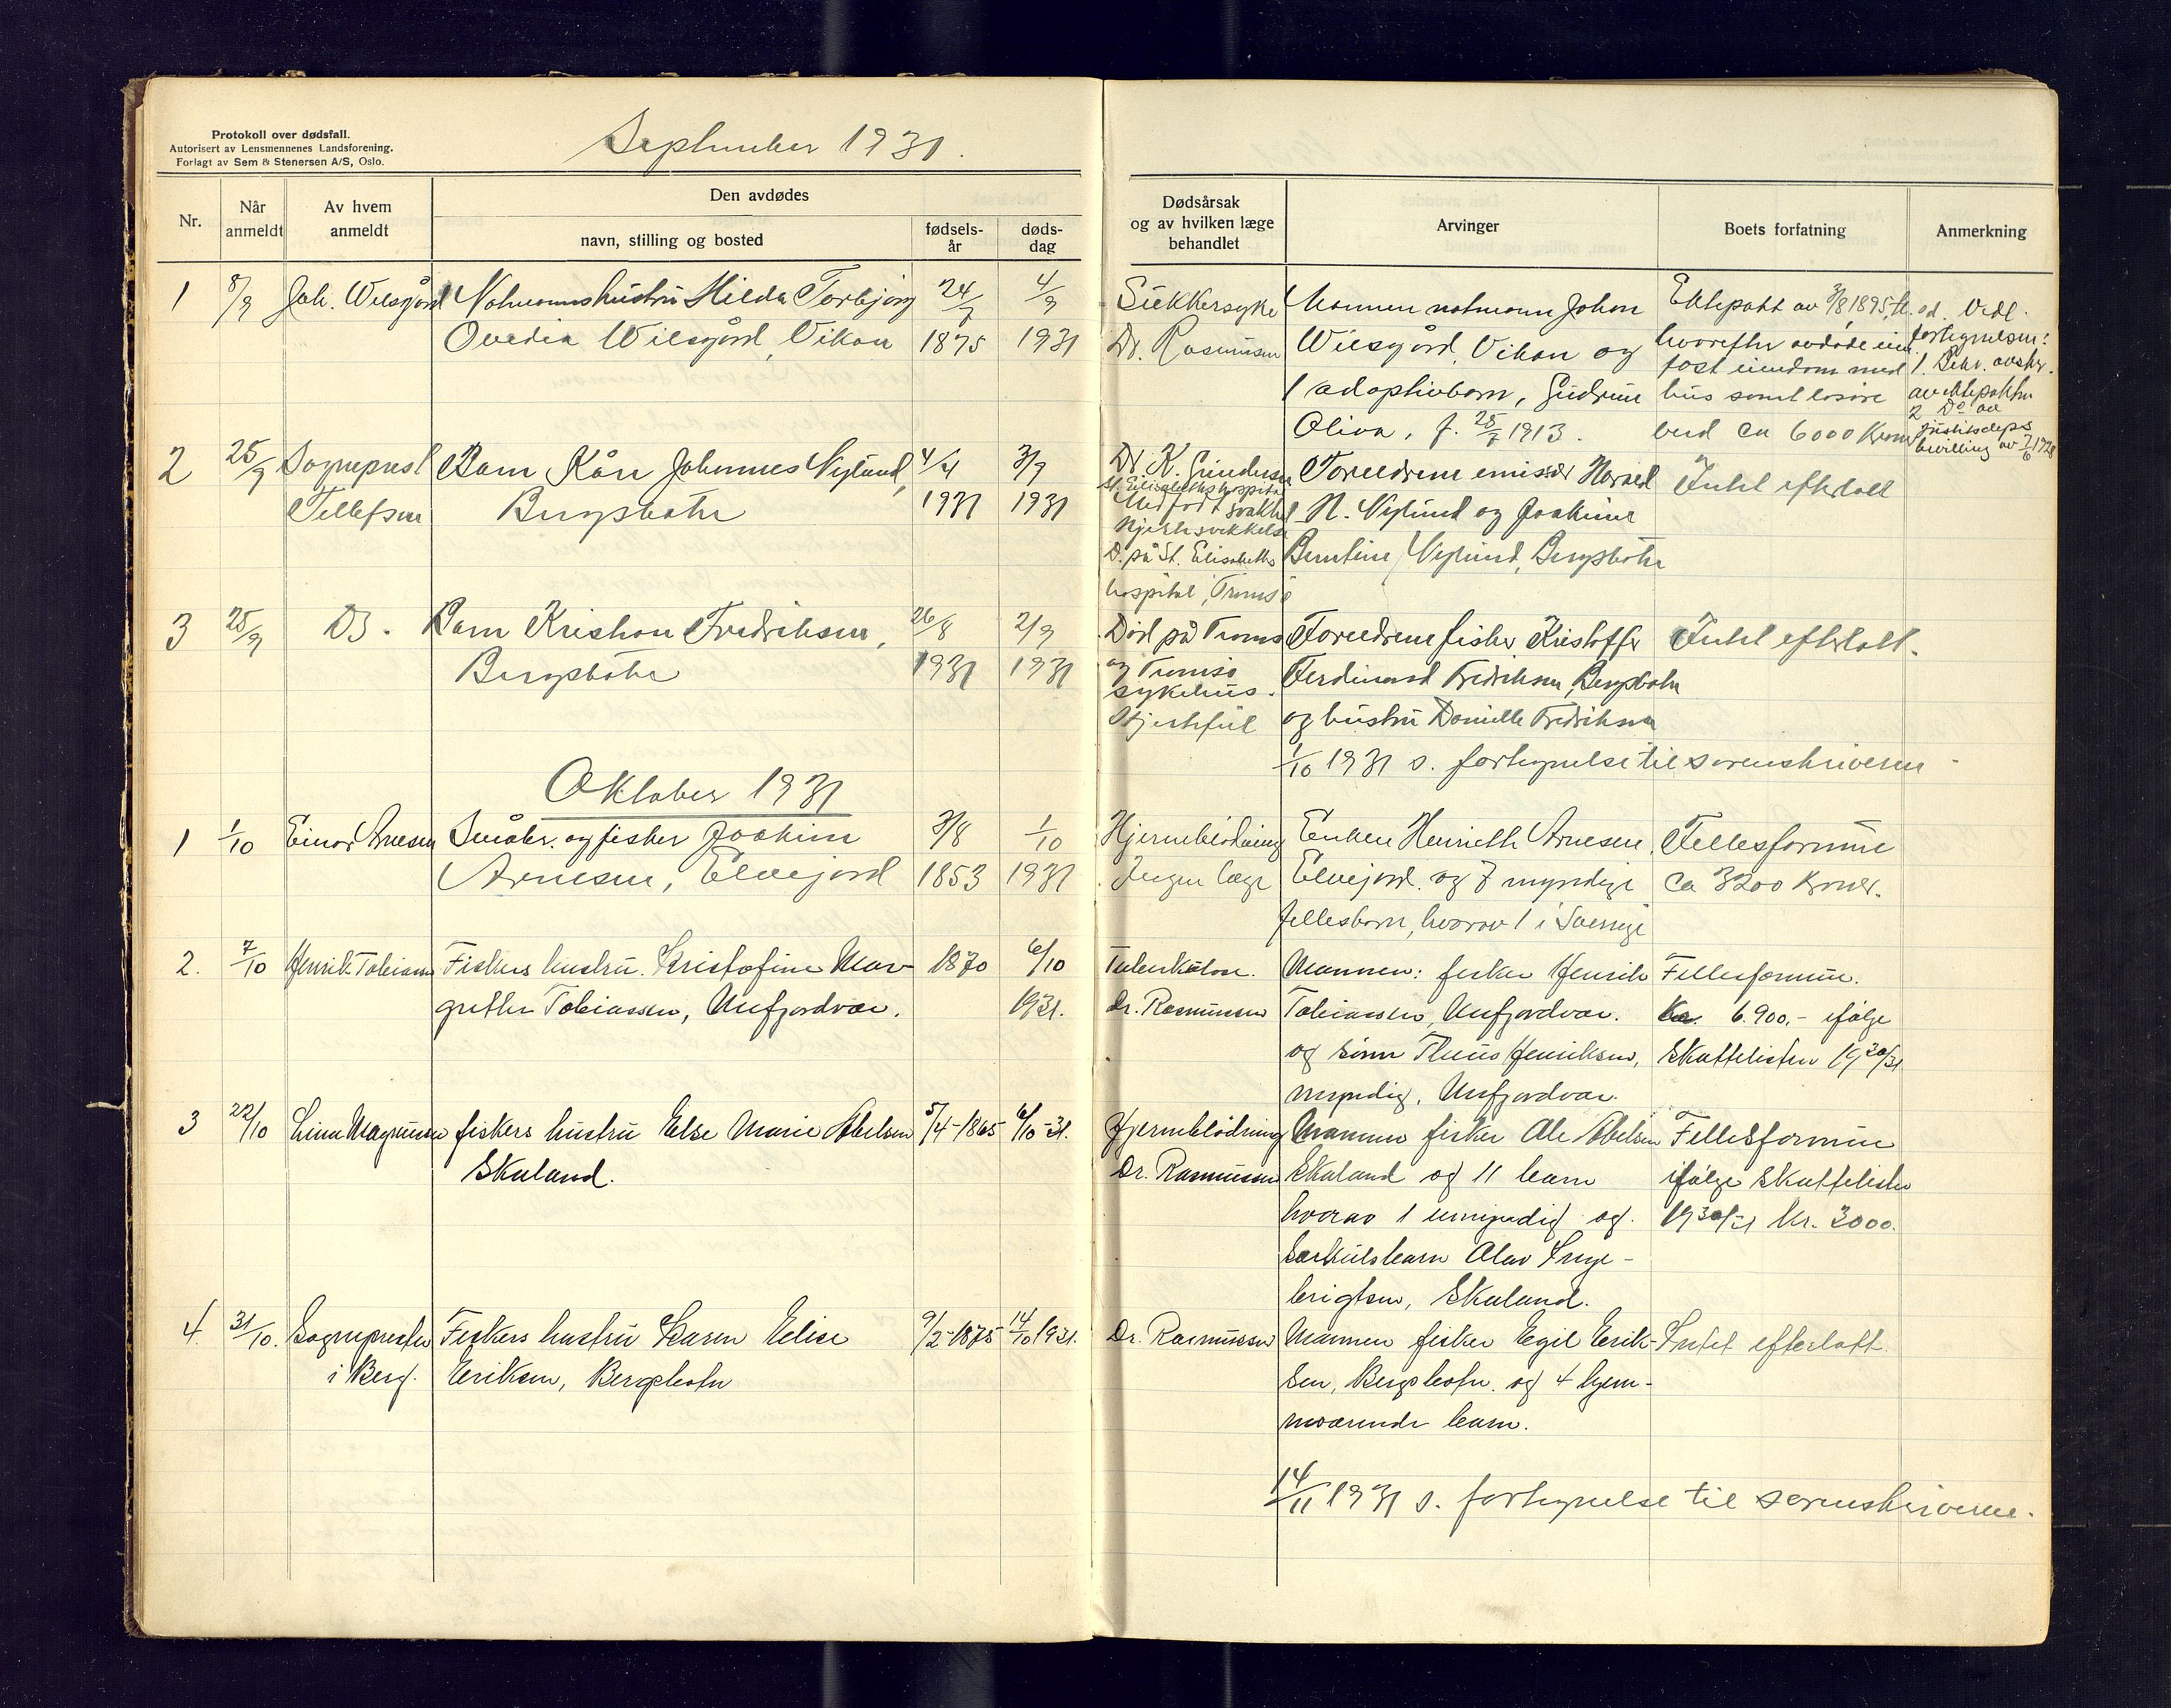 Protokoll over dødsfall.
Autorisert av Lensmennenes Landsforening.
Forlagt av Sem & Stenersen A/S, Oslo.
September 1931.
Nr.
Når anmeldt
Av hvem anmeldt
Den avdødes
navn, stilling og bosted
fødsels-år
døds-dag
Dødsårsak
og av hvilken læge
behandlet
Arvinger
Boets forfatning
Anmerkning
1 8/9 Joh. Wilsgård Notmannshustru Hilda Torbjørg 24/7 4/9
Ovedia Wilsgård, Vikan 1875 1931
Sukkersyke
Dr. Rasmussen
Mannen notmann Johan
Wilsgård, Vikan og
1 adoptivbarn, Gudrun
Oliva, f. 25/7 1913.
Ektepakt av 3/8 1895, tl.
hvorefter avdøde eier
fast eiendom med
hus samt løsøre
verd ca 6000 Kroner
od. Vedl.
fortegnelsen:
1. Bekr. avskr.
av ektepakten
2 Do av
justitsdeps
bevilling av 7/6 1928
2 25/9 Sogneprest Barn Kåre Johannes Nylund, 4/4 3/9
Tellefsen Bergsbotn 1931 1931
Dr. K. Gundersen
St. Elisabeths hospital
Medfødt svakhet
Hjertesvekkelse
D. på St. Elisabeths
hospital, Tromsø
Foreldrene emissær Harald
N. Nylund og Joakime
Berntine Nylund, Bergsbotn
Intet efterlatt
3 25/9 Do. Barn Kristian Fredriksen, 26/8 2/9
Bergsbotn 1931 1931
Død på Troms
og Tromsø
sykehus.
Hjertefeil
Foreldrene fisker Kristoffer
Ferdinand Fredriksen, Bergsbotn
og hustru Danielle Fredriksen
Intet efterlatt.
1/10 1931 s. fortegnelse til sorenskriveren.
Oktober 1931
1 1/10 Einar Arnesen Småbr. og fisker Joakim 3/8 1/10
Arnesen, Elvejord 1853 1931
Hjerneblødning
Ingen læge
Enken Henriette Arnesen,
Elvejord. og 7 myndige
fellesbarn, hvorav 1 i Sverige
Fellesformue
ca 3200 Kroner.
2. 7/10 Henrik Tobiassen Fiskers hustru Kristofine Mar- 1870 6/10
grethe Tobiassen, Mefjordvær. 1931.
Tuberkulose.
Dr. Rasmussen
Mannen: fisker Henrik
Tobiassen, Mefjordvær.
og sønn Theus Henriksen,
myndig, Mefjordvær.
Fellesformue.
Kr. 6.900,- ifølge
Skattelisten 1930/31
3 22/10 Line Magnussen fiskers hustru Else Marie Abelsen 5/4-1865 6/10-31.
Skaland.
Hjerneblødning
Dr. Rasmussen
Mannen fisker Ole Abelsen
Skaland og 11 barn
hvorav 1 umyndig og
særkulsbarn Olav Inge-
brigtsen, Skaland.
Fellesformue
ifølge Skattelisten
1930/31 kr. 3000.
4. 31/10. Sognepresten Fiskers hustru Karen Elise 9/2-1875 14/10 1931.
i Berg. Eriksen, Bergsbotn
Dr. Rasmussen
Mannen fisker Egil Erik-
sen, Bergsbotn. og 4 hjem-
meværende barn.
Intet efterlatt.
14/11 1931 s. fortegnelse til sorenskriveren.